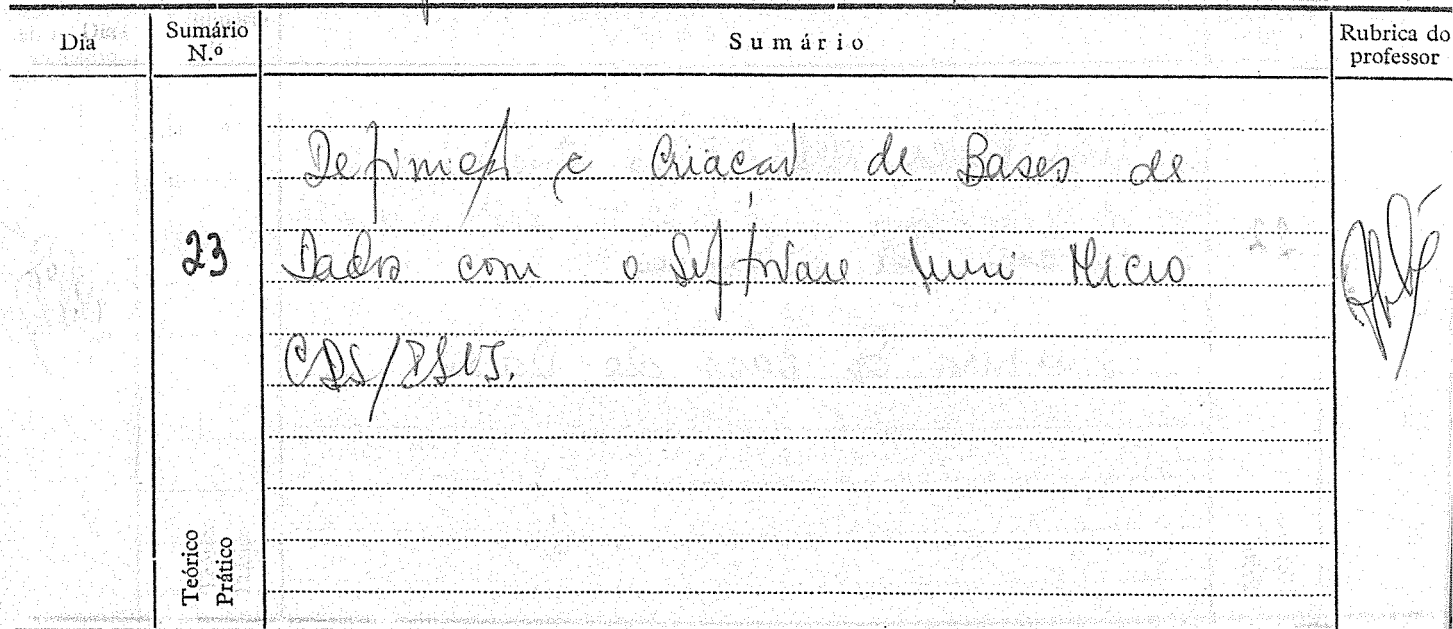 Dia
Sumário N.º
Sumário
Rubrica do professor
23
Definição e Criação de Bases de
Dados com o Software Mini Micro
CDS/ISIS.
Teórico
Prático